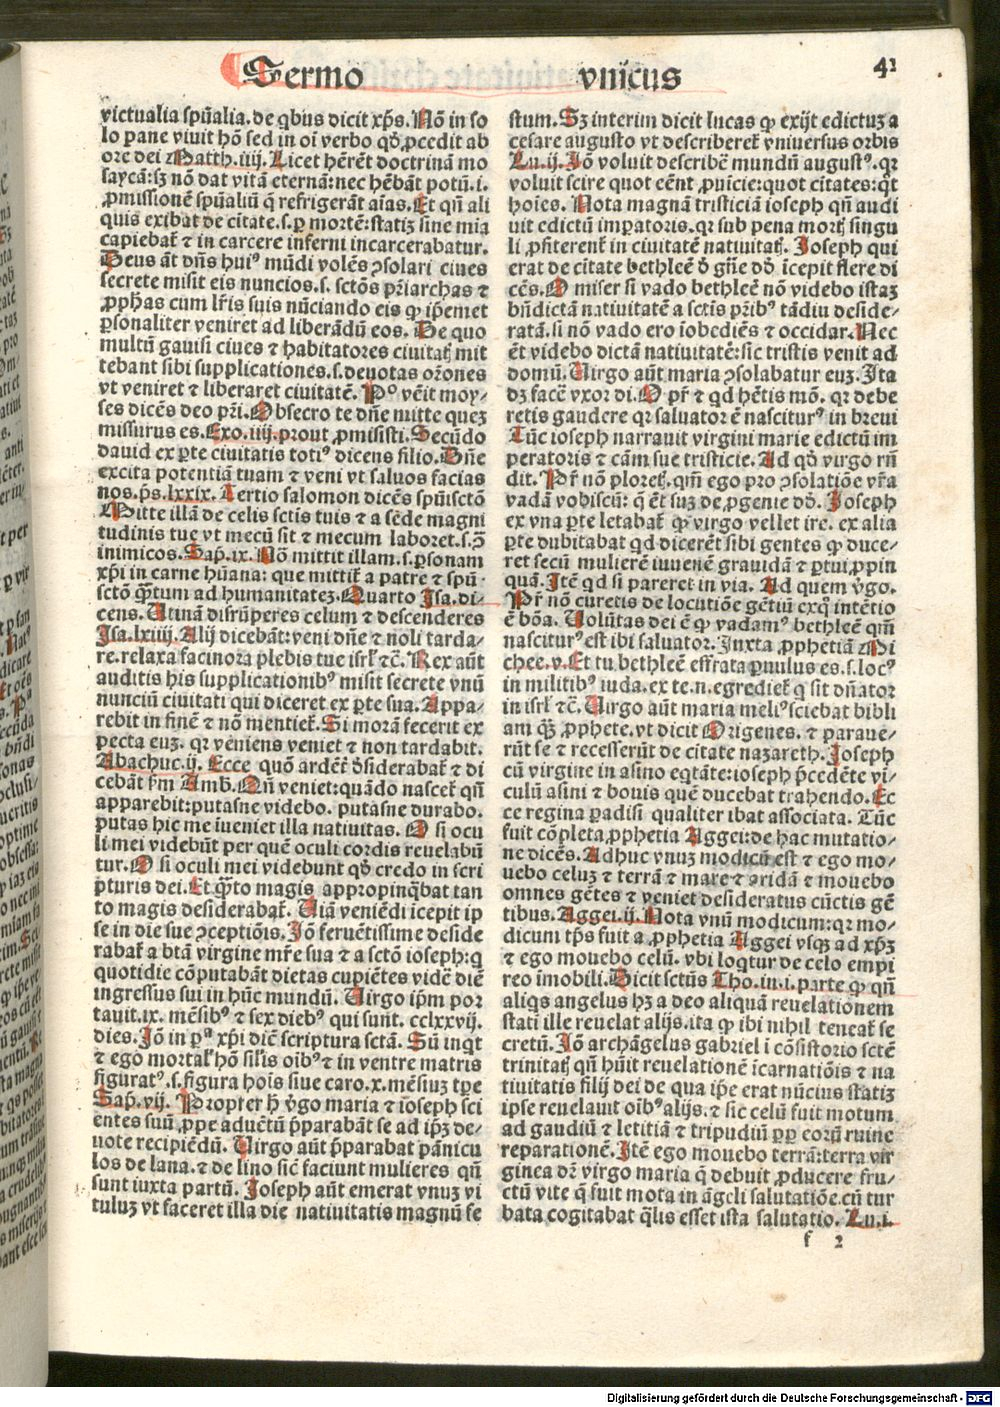 Sermo vnicus 41
victualia spūalia. de qbus dicit xp̄s. Nō in so
lo pane viuit hō sed in oī verbo qđ ꝓcedit ab
ore dei Matth. iiij. Licet hēret doctrinā mo
saycā: sꝫ nō dat vitā eternā: nec hēbāt potū .i.
ꝓmissionē spūaliū q̄ refrigerāt aīas. Et qn̄ ali
quis exibat de citate .s. ꝑ mortē: statiꝫ sine mīa
capiebat̄ ⁊ in carcere inferni incarcerabatur.
Deus āt dn̄s huiꝰ mūdi volēs ꝯsolari ciues
secrete misit eis nuncios .s. sctōs pr̄iarchas ⁊
ꝓphās cum lr̄is suis nūciando eis qꝫ ip̄emet
ꝑsonaliter veniret ad liberādū eos. De quo
multū gauisi ciues ⁊ habitatores ciuitatꝭ mit
tebant sibi supplicationes .s. deuotas or̄ones
vt veniret ⁊ liberaret ciuitatē. Pº vēit moy⸗
ses dicēs deo pr̄i. Obsecro te dn̄e mitte queꝫ
missurus es. Exo. iiij. prout ꝓmisisti. Secūdo
dauid ex ꝑte ciuitatis totiꝰ dicens filio. Dn̄e
excita potentiā tuam ⁊ veni vt saluos facias
nos. ps. lxxix. Tertio salomon dicēs spūisctō
Mitte illā de celis sctīs tuis ⁊ a sēde magni
tudinis tue vt mecū sit ⁊ mecum laboret .s. ꝯ̄
inimicos. Sap. ix. Nō mittit illam .s. ꝑsonam
xp̄i in carne hūana: que mittit̄ a patre ⁊ spū
sctō qꝫtum ad humanitateꝫ. Quarto Isa. di⸗
cens. Utinā disrūperes celum ⁊ descenderes
Isa. lxiiij. Alij dicebāt: veni dn̄e ⁊ noli tarda⸗
re. relaxa facinora plebis tue isrl̄ ⁊c̄. Rex aūt
auditis his supplicationibꝰ misit secrete vnū
nunciū ciuitati qui diceret ex ꝑte sua. Appa⸗
rebit in finē ⁊ nō mentiet̄. Si morā fecerit ex
pecta euꝫ. qr veniens veniet ⁊ non tardabit.
Abachuc. ij. Ecce quō ardēt̄ dꝰsiderabat̄ ⁊ di
cebāt ẜm Amb. Qn̄ veniet: quādo nascet̄ qn̄
apparebit: putasne videbo. putasne durabo.
putas hic me īueniet illa natiuitas. O si ocu
li mei videbūt per quē oculi cordis reuelabū
tur. O si oculi mei videbunt qđ credo in scri
pturis dei. Et qꝫto magis appropinqbat tan
to magis desiderabat̄. Uiā veniēdi icepit ip
se in die sue ꝯceptiōis. Iō feruētissime deside
rabat̄ a btā virgine mr̄e sua ⁊ a sctō ioseph: q
quotidie cōputabāt dietas cupiētes vidē diē
ingressus sui in hūc mundū. Uirgo ip̄m por
tauit .ix. mēsibꝰ ⁊ sex diebꝰ qui sunt. cclxxvij.
dies. Iō in ꝑª xp̄i dic̄ scriptura sctā. Sū inqt
⁊ ego mortal̄ hō sil̄is oībꝰ ⁊ in ventre matris
figuratꝰ .s. figura hoīs siue caro .x. mēsiuꝫ tꝑe
Sap. vij. Propter ħ v̄go maria ⁊ ioseph sci
entes suū ꝓpe aduētū p̄parabāt se ad ip̄ꝫ de⸗
uote recipiēdū. Uirgo aūt p̄parabat pānicu
los de lana. ⁊ de lino sic̄ faciunt mulieres qn̄
sunt iuxta partū. Ioseph aūt emerat vnuꝫ vi
tuluꝫ vt faceret illa die natiuitatis magnū fe
stum. Sꝫ interim dicit lucas qꝫ exijt edictuꝫ a
cesare augusto vt describeret̄ vniuersus orbis
Lu. ij. Iō voluit describē mundū augustꝰ. qr
voluit scire quot eēnt ꝓuīcie: quot citates: qt
hoīes. Nota magnā tristiciā ioseph qn̄ audi
uit edictū imperatoris. qr sub pena mortꝭ singu
li ꝓfiterent̄ in ciuitatē natiuitatꝭ. Ioseph qui
erat de citate bethleē đ gn̄e dđ īcepit flere di
cēs. O miser si vado bethleē nō videbo istaꝫ
bn̄dictā natiuitatē a sctīs pr̄ibꝰ tādiu deside⸗
ratā. si nō vado ero īobediēs ⁊ occidar. Nec
ēt videbo dictā natiuitatē: sic tristis venit ad
domū. Uirgo aūt maria ꝯsolabatur euꝫ. Ista
dꝫ facē vxor di. O pr̄ ⁊ qd hētis mō. qr debe
retis gaudere qr saluator ē nasciturꝰ in breui
Tūc ioseph narrauit virgini marie edictū im
peratoris ⁊ cām sue tristicie. Ad qđ virgo rn̄
dit. Pr̄ nō ploretꝭ. qm̄ ego pro ꝯsolatiōe vr̄a
vadā vobiscū: q̄ ēt suꝫ de ꝓgenie dđ. Ioseph
ex vna ꝑte letabat̄ qꝫ virgo vellet ire. ex alia
ꝑte dubitabat qd dicerēt sibi gentes qꝫ duce⸗
ret secū mulierē iuuenē grauidā ⁊ ꝑtui ꝓpin
quā. Itē qd si pareret in via. Ad quem v̄go.
Pr̄ nō curetis de locutiōe gētiū exq̄ intētio
ē bōa. Uolūtas dei ē qꝫ vadamꝰ bethleē qm̄
nasciturꝰ est ibi saluator. Iuxta ꝓphetiā Mi
chee. v. Et tu bethleē effrata ꝑuulus es .s. locꝰ
in militibꝰ iuda. ex te .n. egrediet̄ q sit dn̄ator
in isrl̄ ⁊c̄. Uirgo aūt maria meliꝰ sciebat bibli
am qꝫ ꝓphete. vt dicit Origenes. ⁊ parauē⸗
rūt se ⁊ recesserūt de citate nazareth. Ioseph
cū virgine in asino eqtāte: ioseph p̄cedēte vi⸗
culū asini ⁊ bouis quē ducebat trahendo. Ec
ce regina paradisi qualiter ibat associata. Tūc
fuit cōpleta ꝓphetia Aggei: de hac mutatio⸗
ne dicēs. Adhuc vnuꝫ modicū est ⁊ ego mo⸗
uebo celuꝫ ⁊ terrā ⁊ mare ⁊ aridā ⁊ mouebo
omnes gētes ⁊ veniet desideratus cūctis gē
tibus. Aggei. ij. Nota vnū modicum: qr mo⸗
dicum tp̄s fuit a ꝓphetia Aggei vsqꝫ ad xp̄ꝫ
⁊ ego mouebo celū. vbi loqtur de celo empi
reo īmobili. Dicit sctūs Tho. in .i. parte qꝫ qn̄
aliqs angelus hꝫ a deo aliquā reuelationem
stati ille reuelat alijs. ita qꝫ ibi nihil teneat̄ se
cretū. Iō archāgelus gabriel i cōsistorio sctē
trinitatꝭ qn̄ hūit reuelationē īcarnatiōis ⁊ na
tiuitatis filij dei de qua ip̄e erat nūcius statiꝫ
ipse reuelauit oībꝰ alijs. ⁊ sic celū fuit motum
ad gaudiū ⁊ letitiā ⁊ tripudiū ꝓꝑ eorū ruine
reparationē. Itē ego mouebo terrā: terra vir
ginea dr̄ virgo maria q̄ debuit ꝓducere fru⸗
ctū vite q̄ fuit mota in āgeli salutatiōe. cū tur
bata cogitabat q̄lis esset ista salutatio. Lu. i.
f 2
Digitalisierung gefördert durch die Deutsche Forschungsgemeinschaft - DFG